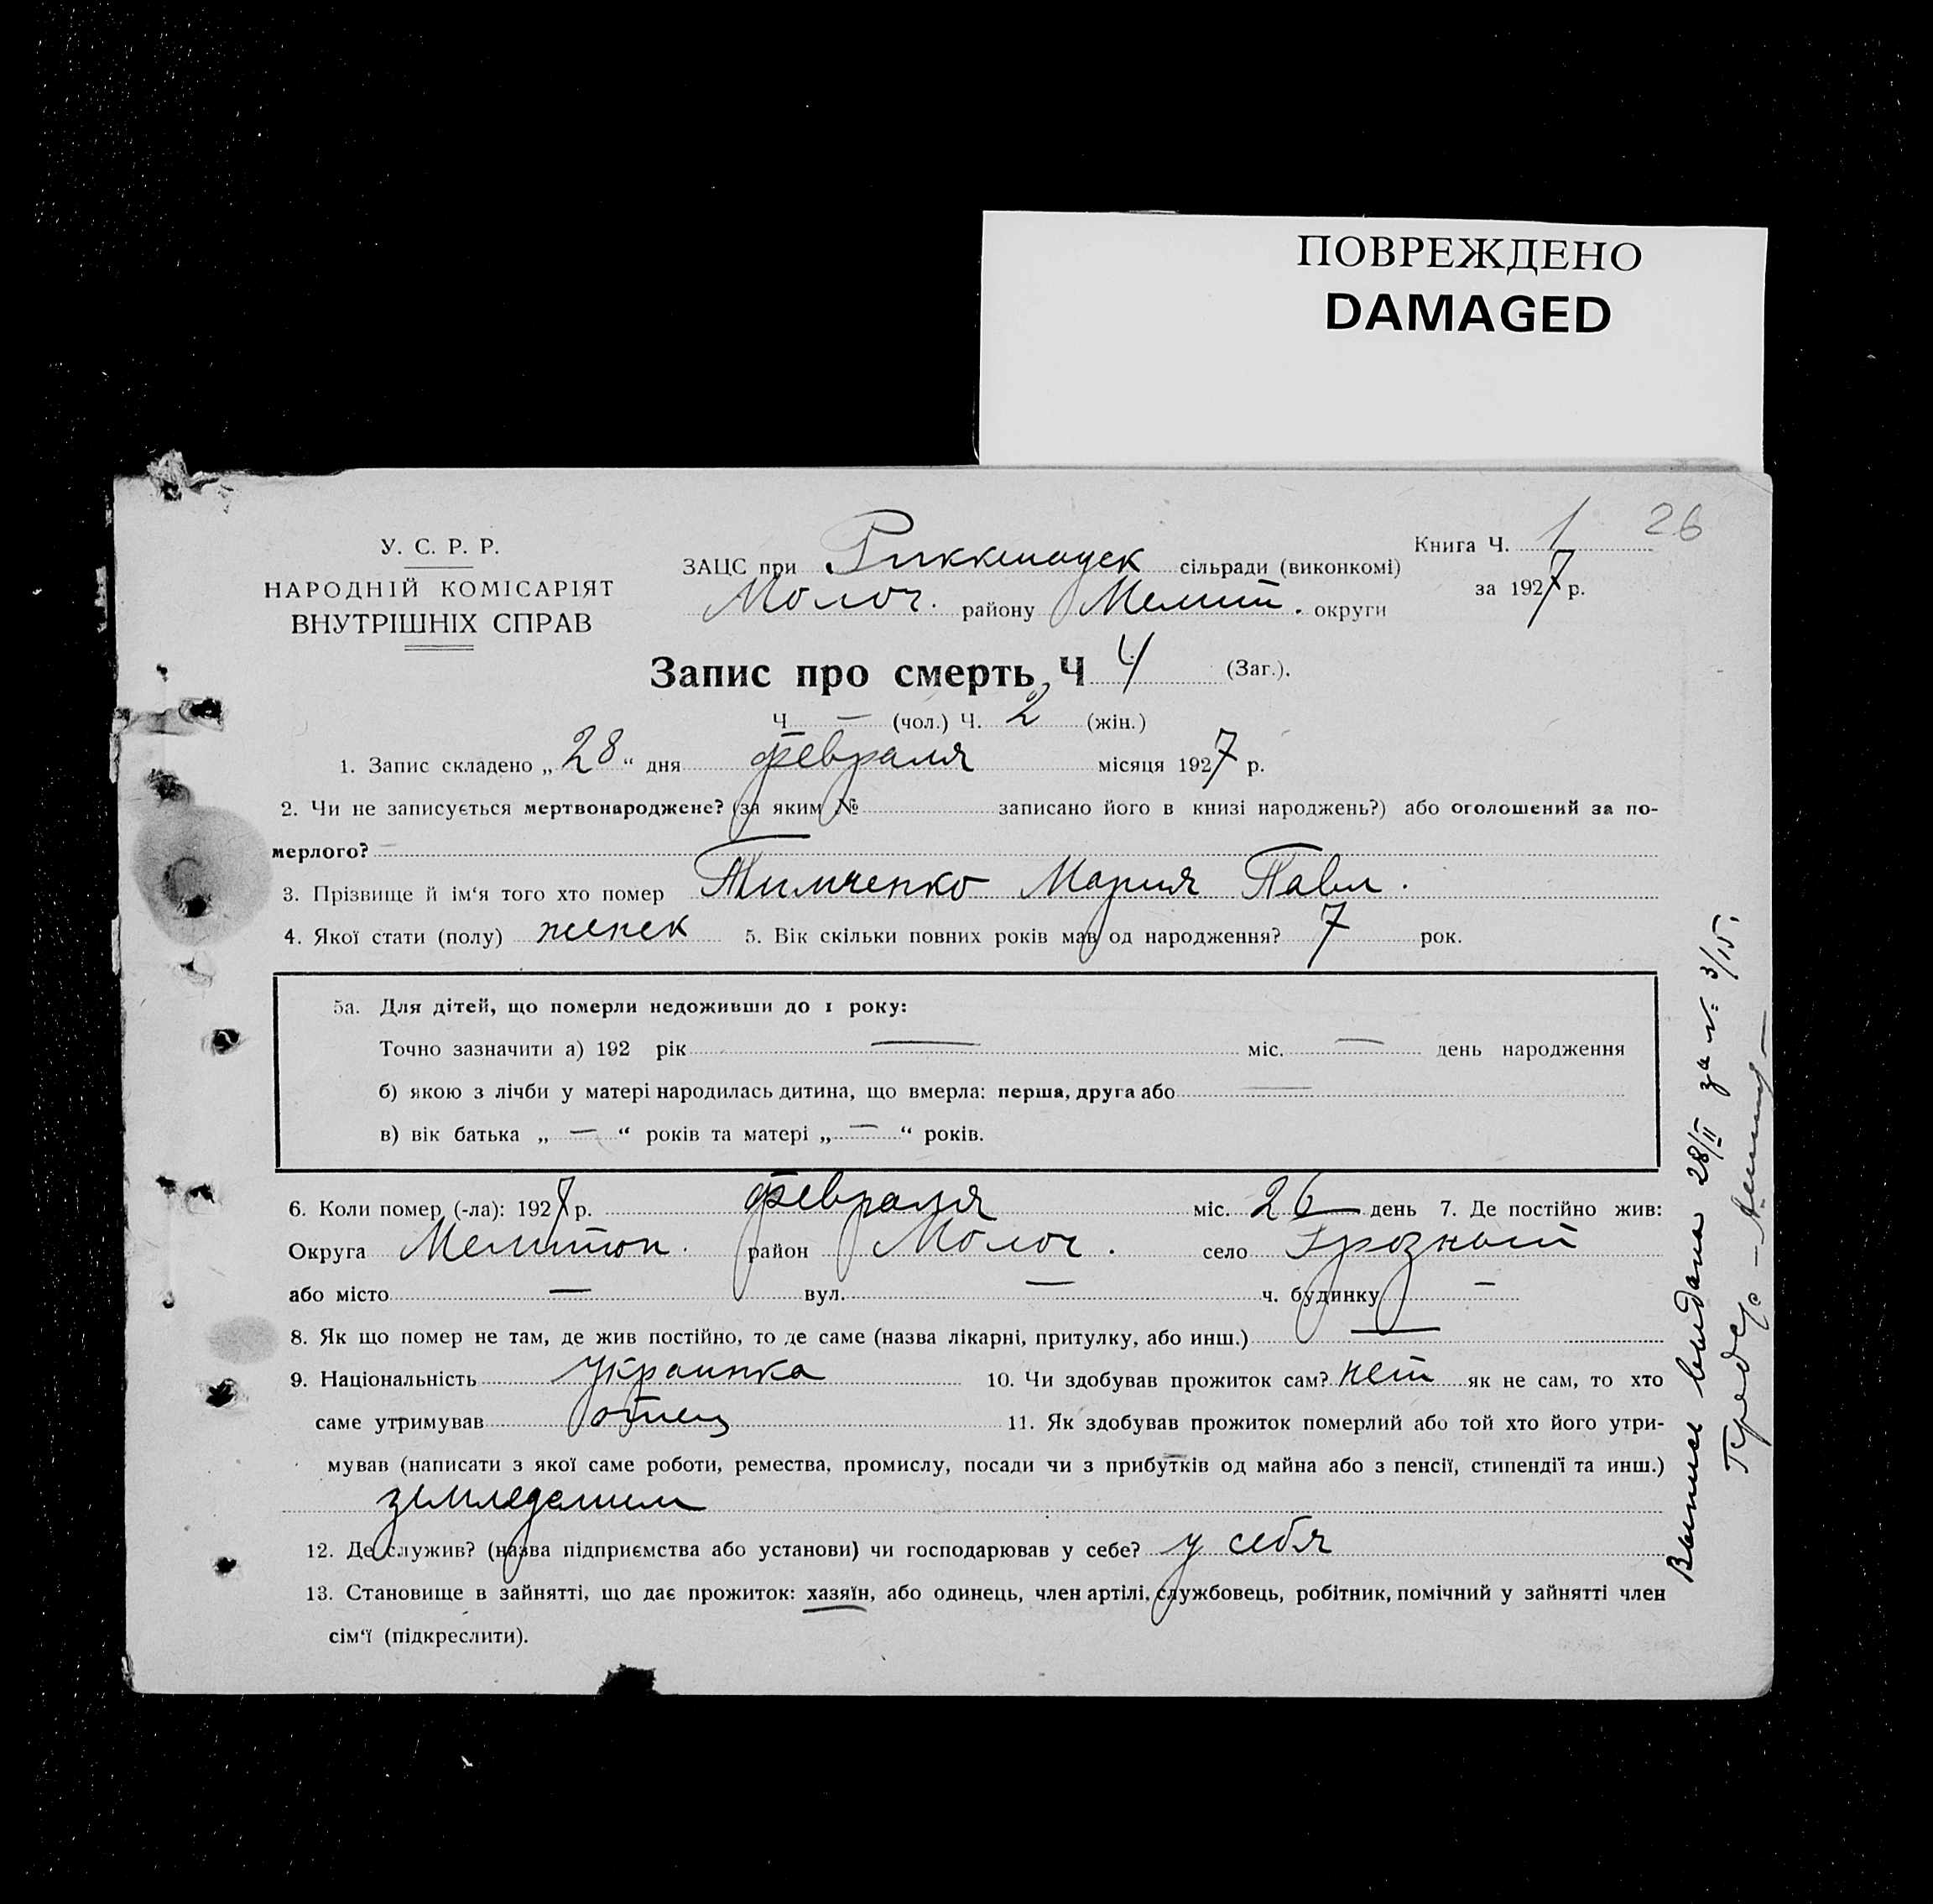 ПОВРЕЖДЕНО
DAMAGED
26
У. С. Р. Р.
НАРОДНІЙ КОМІСАРІЯТ
ВНУТРІШНІХ СПРАВ
ЗАЦС при Риккенауск сільради (виконкомі)
Молоч. району Мелит. округи
Книга Ч. 1
за 1927 р.
Запис про смерть, Ч 4 (Заг.).
Ч — (чол.) Ч. 2 (жін.)
1. Запис складено „28“ дня февраля місяця 1927 р.
2. Чи не записується мертвонароджене? (за яким № записано його в книзі народжень?) або оголошений за по-
мерлого?
3. Прізвище й ім‘я того хто помер Тимченко Мария Павл.
4. Якої стати (полу) женск 5. Вік скільки повних років мав од народження? 7 рок.
5а. Для дітей, що померли недоживши до 1 року:
Точно зазначити а) 192 рік — міс. — день народження
б) якою з лічби у матері народилась дитина, що вмерла: перша, друга або —
в) вік батька „ — “ років та матері „ — “ років.
6. Коли помер (-ла): 1927 р. февраля міс. 26 день 7. Де постійно жив:
Округа Мелитоп. район Молоч. село Грозный
або місто — вул. — ч. будинку —
8. Як що помер не там, де жив постійно, то де саме (назва лікарні, притулку, або инш.) —
9. Національність украинка 10. Чи здобував прожиток сам? нет як не сам, то хто
саме утримував отец 11. Як здобував прожиток померлий або той хто його утри-
мував (написати з якої саме роботи, ремества, промислу, посади чи з прибутків од майна або з пенсії, стипендії та инш.)
земледелием
12. Де служив? (назва підприємства або установи) чи господарював у себе? у себя
13. Становище в зайнятті, що дає прожиток: хазяїн, або одинець, член артілі, службовець, робітник, помічний у зайнятті член
сім‘ї (підкреслити).
Выпись выдана 28/II за №: 3/15.